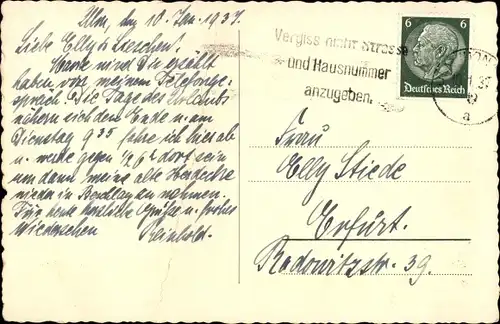 Ulm, den 10. Jan. 1937.
Liebe Elly u. Lieschen!
wird Dir erzählt
haben von meinem Telefonge-
spräch. Die Tage des Urlaubs
nähern sich dem Ende u. am
Dienstag 9 35 fahre ich hier ab
u. werde gegen 1/2 6 h dort sein
um dann meine alte
wieder in zu nehmen.
Für heute herzliche Grüße u. frohes
Wiedersehen
Reinhold.
Vergiss nicht Strasse
und Hausnummer
anzugeben.
6 6
Deutsches Reich
a
Frau
Elly Stiede
Erfurt.
Radowitzstr. 39.